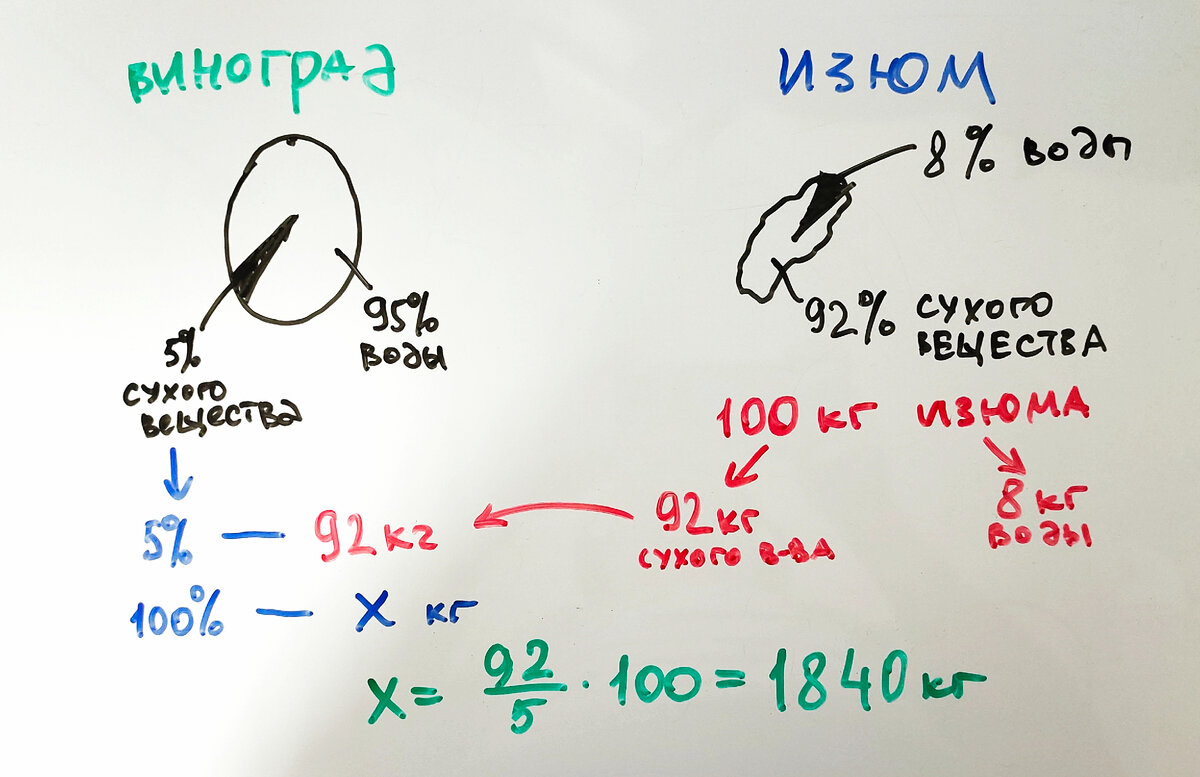 ВИНОГРАД
ИЗЮМ
8% ВОДЫ
95%
ВОДЫ
92% СУХОГО
ВЕЩЕСТВА
5%
СУХОГО
ВЕЩЕСТВА
100 кг ИЗЮМА
92 кг
СУХОГО В-ВА
8 кг
ВОДЫ
5% — 92 кг
100% — X кг
X = 92/5 · 100 = 1840 кг